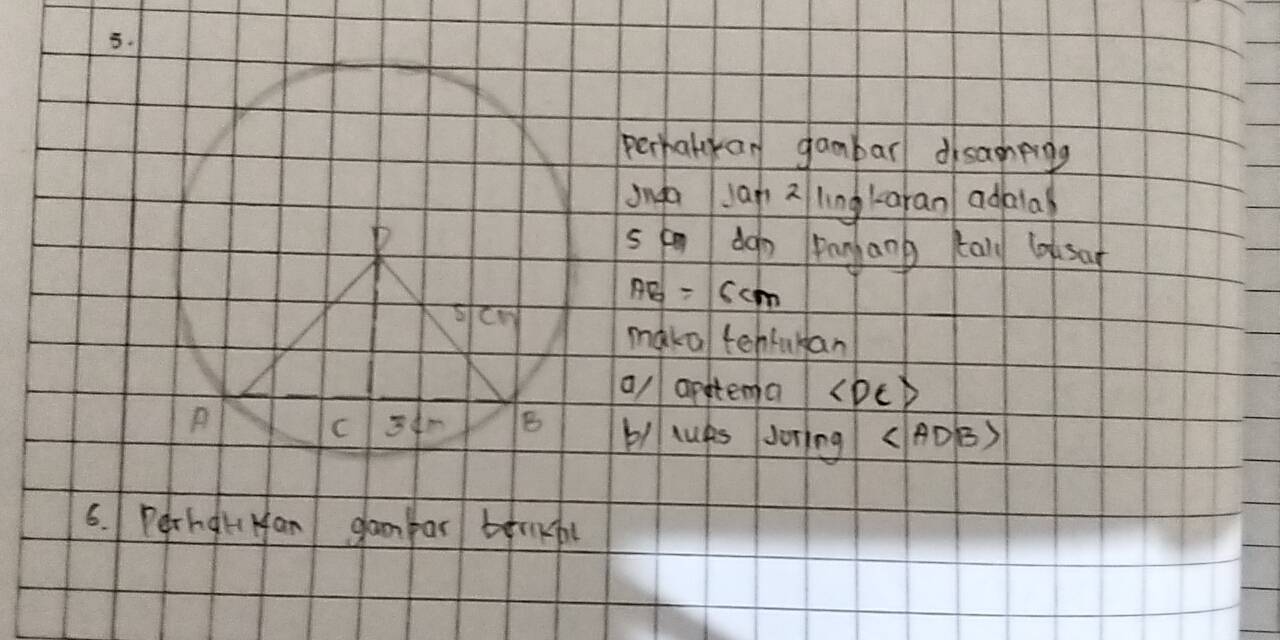 5.
Perhatikan gambar disamping
Jika Jari 2 lingkaran adalah
5 cm dan Panjang tali busar
AB = 6cm
maka tentukan
a/ apotema <DC>
b/ luas Juring <ADB>
D
5 cm
A
C
3 cm
B
6. Perhatikan gambar berikut